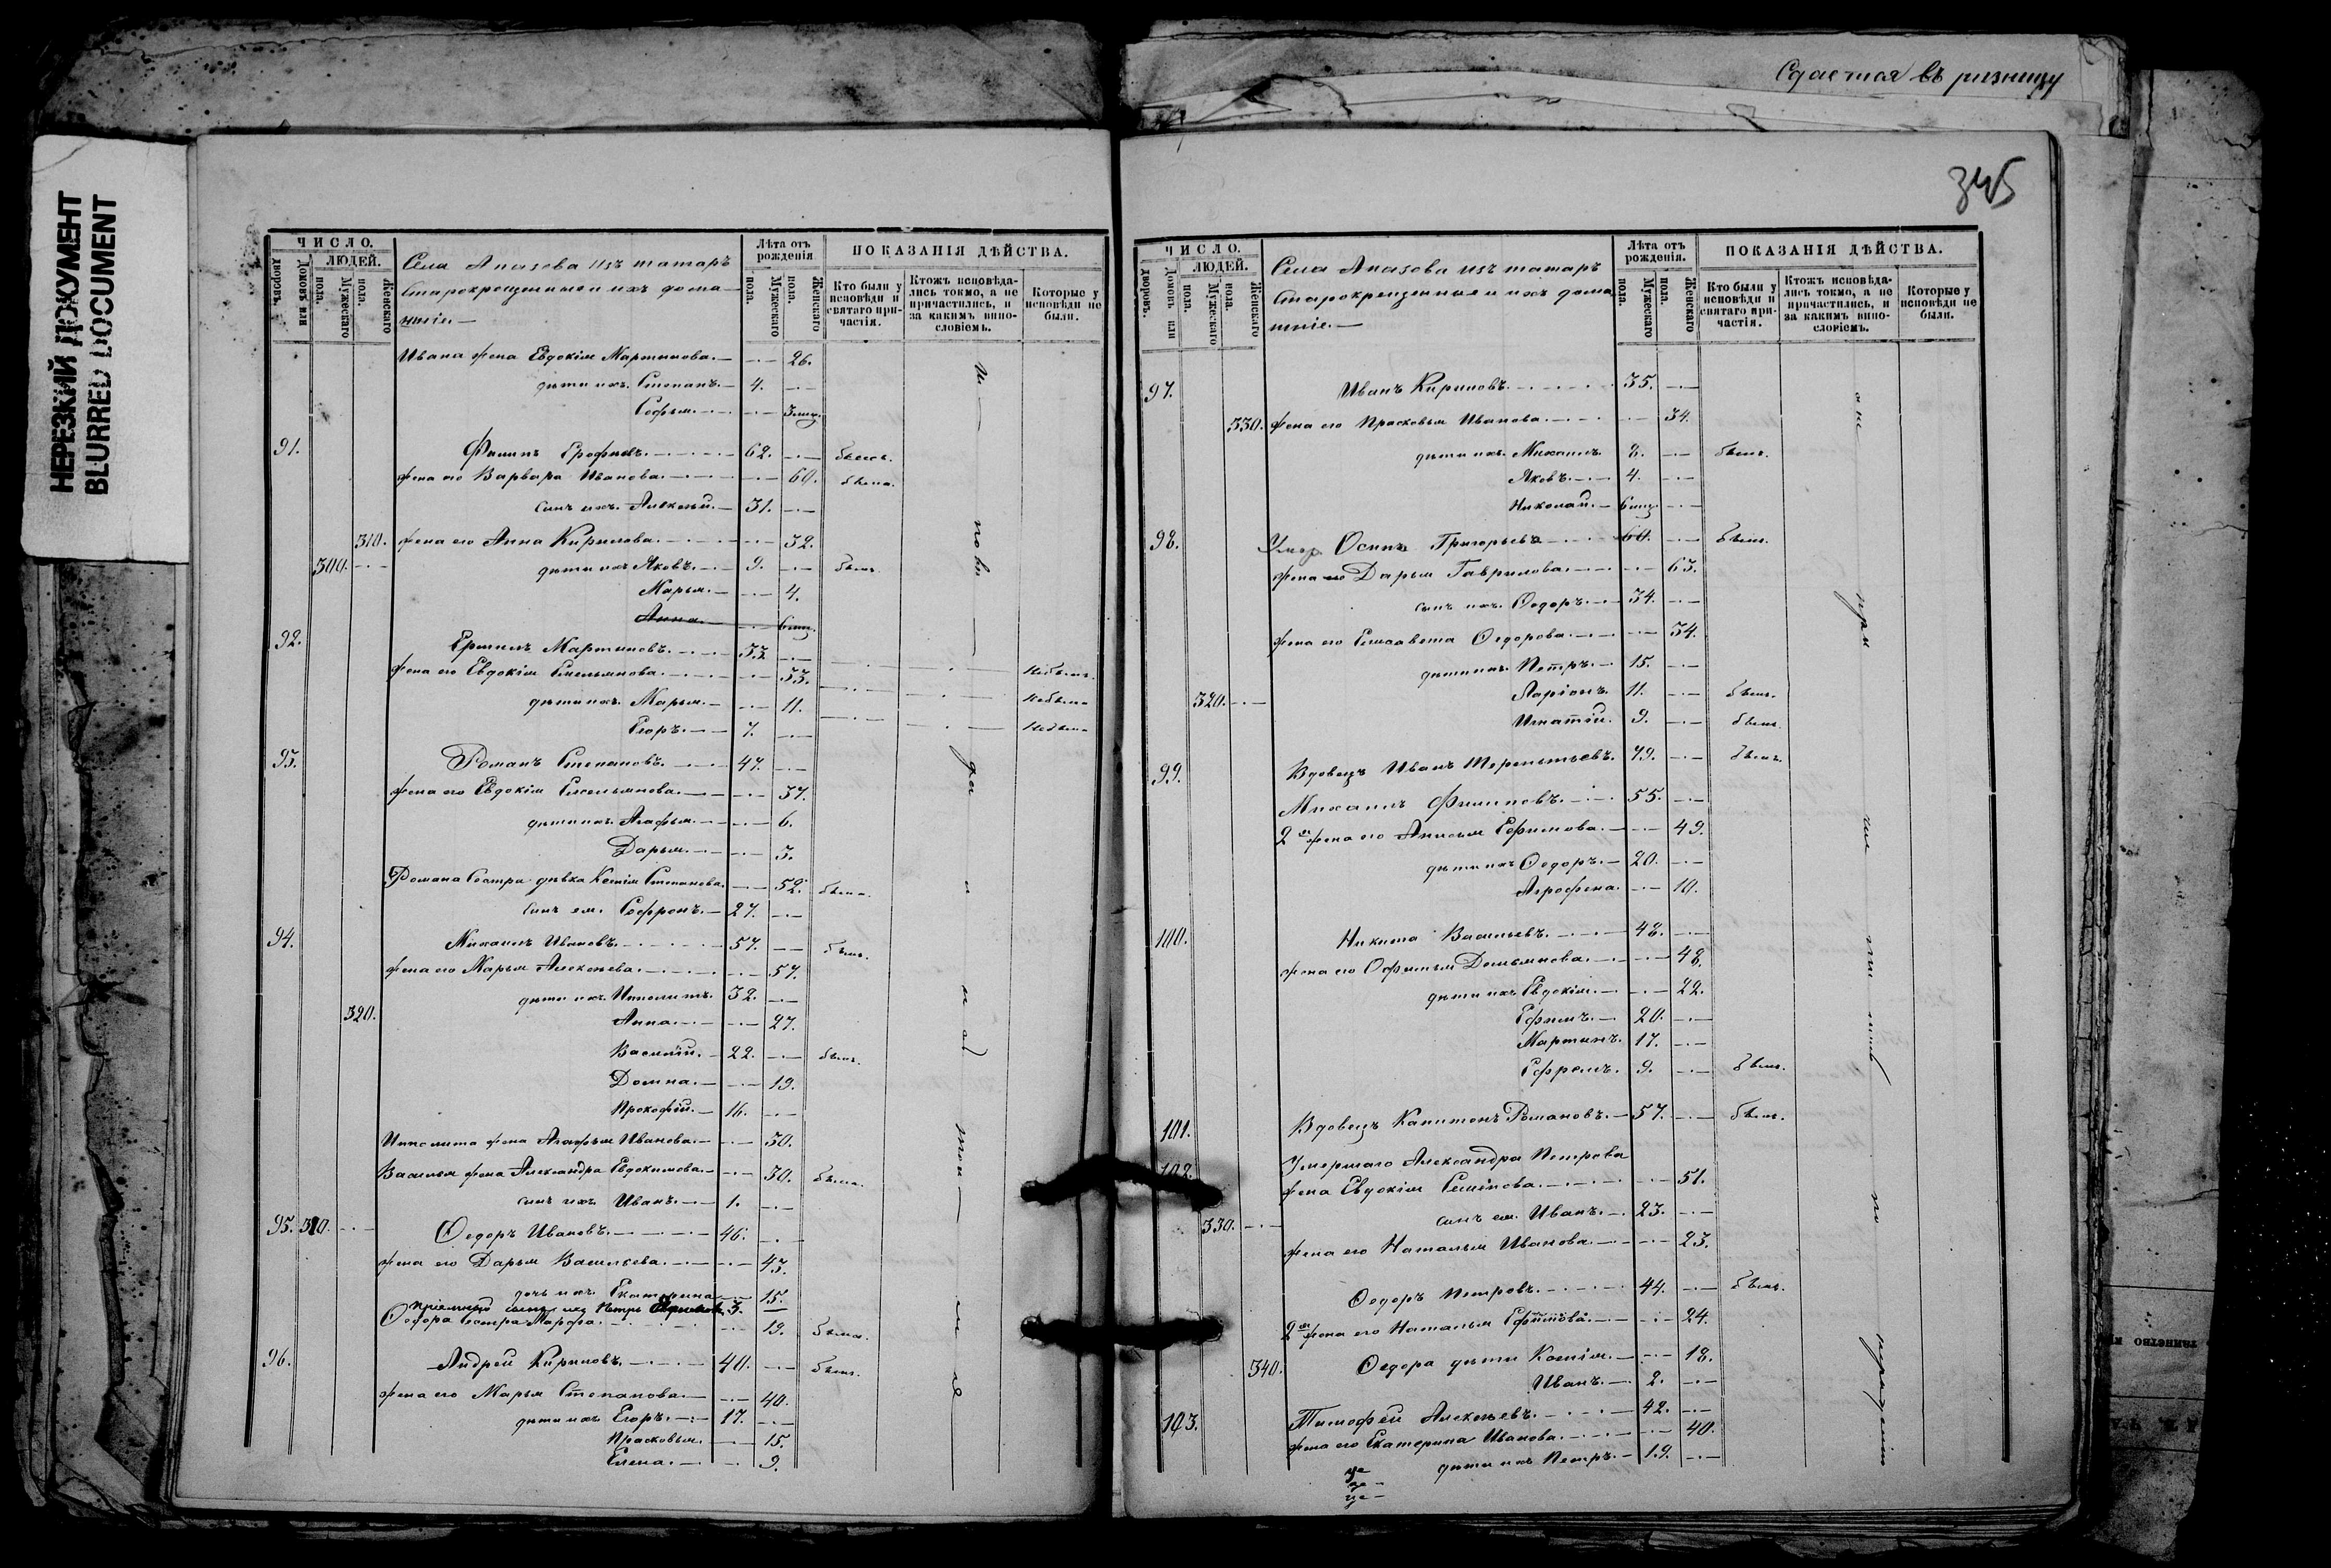 Сдается въ ризницу
345
НЕРЕЗКИЙ ДОКУМЕНТ
BLURRED DOCUMENT
ЧИСЛО.
ЛЮДЕЙ.
дворовъ.
Домовъ или
Мужескаго пола.
Женскаго пола.
Села Апазова изъ татаръ
старокрещенные и ихъ дома-
шніе.—
Лѣта отъ рожденія.
Мужескаго пола.
Женскаго пола.
ПОКАЗАНІЯ ДѢЙСТВА.
Кто были у исповѣди и святаго при-частія.
Ктожъ исповѣда-лись токмо, а не причастились, и за какимъ вино-словіемъ.
Которые у исповѣди не были.
Ивана жена Евдокія Мартинова. 26.
дѣти ихъ. Степанъ. 4.
Софья. 3 мѣц.
91. Филипъ Ерофеевъ. 62. былъ.
жена его Варвара Иванова. 60. была.
сынъ ихъ. Алексѣй. 31.
310. жена его Анна Кирилова. 32.
300. дѣти ихъ Яковъ. 9. былъ.
Марья. 4.
Анна. 6 мѣц.
92. Ермилъ Мартиновъ. 33. Небылъ.
жена его Евдокія Емельянова. 33. Небыла
дѣти ихъ. Марья. 11. Небыла
Егоръ. 7.
93. Романъ Степановъ. 47.
жена его Евдокія Емельянова. 37.
дѣти ихъ. Агафья. 6.
Дарья. 3.
Романа Сестра дѣвка Ксенія Степанова. 52. была.
сынъ ея. Софронъ. 27.
94. Михаилъ Ивановъ. 57. былъ.
жена его Марья Алексѣева. 57.
дѣти ихъ. Ипполитъ. 32.
320. Анна. 27.
Василій. 22. былъ.
Домна. 19.
Прокофій. 16.
Ипполита жена Агафья Иванова. 30.
Василья жена Александра Евдокимова. 30. была.
сынъ ихъ Иванъ. 1.
95. 310. Ѳедоръ Ивановъ. 46.
жена его Дарья Васильева. 43.
дочь ихъ Екатерина 15.
пріемный сынъ ихъ Петръ 3.
Ѳедора Сестра Марфа. 19. была.
96. Андрей Кириловъ. 40. былъ.
жена его Марья Степанова. 40.
дѣти ихъ Егоръ. 17.
Прасковья. 15.
Елена. 9.
ЧИСЛО.
ЛЮДЕЙ.
дворовъ.
Домовъ или
Мужескаго пола.
Женскаго пола.
Села Апазова изъ татаръ
Старокрещенные и ихъ дома
шніе.—
Лѣта отъ рожденія.
Мужескаго пола.
Женскаго пола.
ПОКАЗАНІЯ ДѢЙСТВА.
Кто были у исповѣди и святаго при-частія.
Ктожъ исповѣда-лись токмо, а не причастились, и за какимъ вино-словіемъ.
Которые у исповѣди не были.
97. Иванъ Кириловъ. 35.
330. жена его Прасковья Иванова. 34.
дѣти ихъ. Михаилъ. 8. былъ.
Яковъ. 4.
Николай. 6 мѣц.
98. Умер. Осипа Григорьева 60. былъ.
жена его Дарья Гаврилова. 63.
сынъ ихъ. Ѳедоръ. 34.
жена его Елисавета Ѳедорова. 34.
дѣти ихъ. Петръ. 15.
320. Ларіонъ. 11. былъ.
Игнатій. 9. былъ.
99. Вдовецъ Иванъ Терентьевъ. 79. былъ.
Михаилъ Филиповъ. 55.
2я жена его Анисья Ефимова. 49.
дѣти ихъ Ѳедоръ. 20.
Агрофена. 10.
100. Никита Васильевъ. 48.
жена его Офимья Демьянова. 48.
дѣти ихъ Евдокія. 22.
Ефимъ. 20.
Мартинъ. 17.
Ефремъ. 9. былъ.
101. Вдовецъ Капитонъ Романовъ. 57. былъ.
102. Умершаго Александра Петрова
жена Евдокія Семёнова. 51.
330. сынъ ея. Иванъ. 23.
жена его Наталья Иванова. 23.
Ѳедоръ Петровъ. 44. былъ.
2я жена его Наталья Ефимова. 24.
340. Ѳедора дѣти Ксенія. 18.
Иванъ. 2.
103. Тимофей Алексѣевъ. 42.
жена его Екатерина Иванова. 40.
дѣти ихъ Петръ. 19.